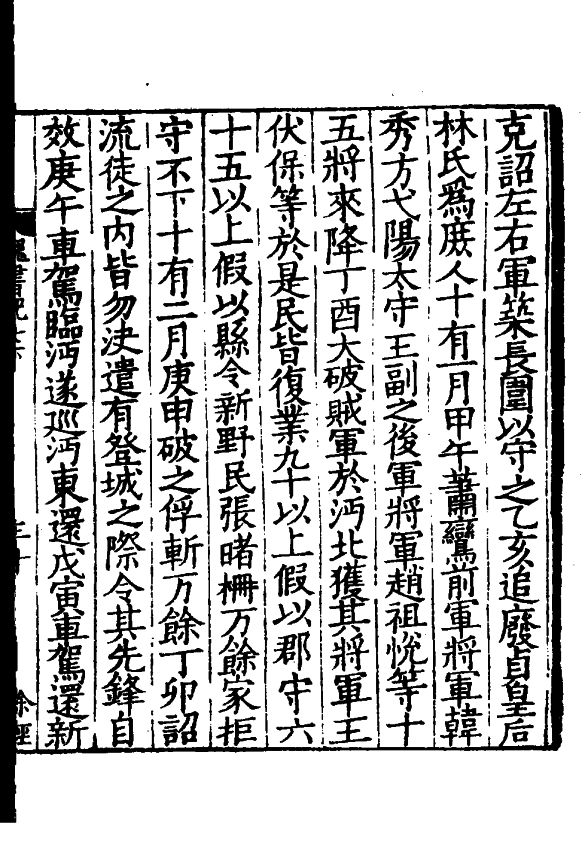 克詔左右軍築長圍以守之乙亥追廢貞皇后
林氏爲庶人十有一月甲午蕭鸞前軍將軍韓
秀方弋陽太守王副之後軍將軍趙祖悅等十
五將來降丁酉大破賊軍於沔北獲其將軍王
伏保等於是民皆復業九十以上假以郡守六
十五以上假以縣令新野民張睹柵万餘家拒
守不下十有二月庚申破之俘斬万餘丁卯詔
流徒之內皆勿决遣有登城之際令其先鋒自
效庚午車駕臨沔遂巡沔東還戊寅車駕還新
魏書紀七下